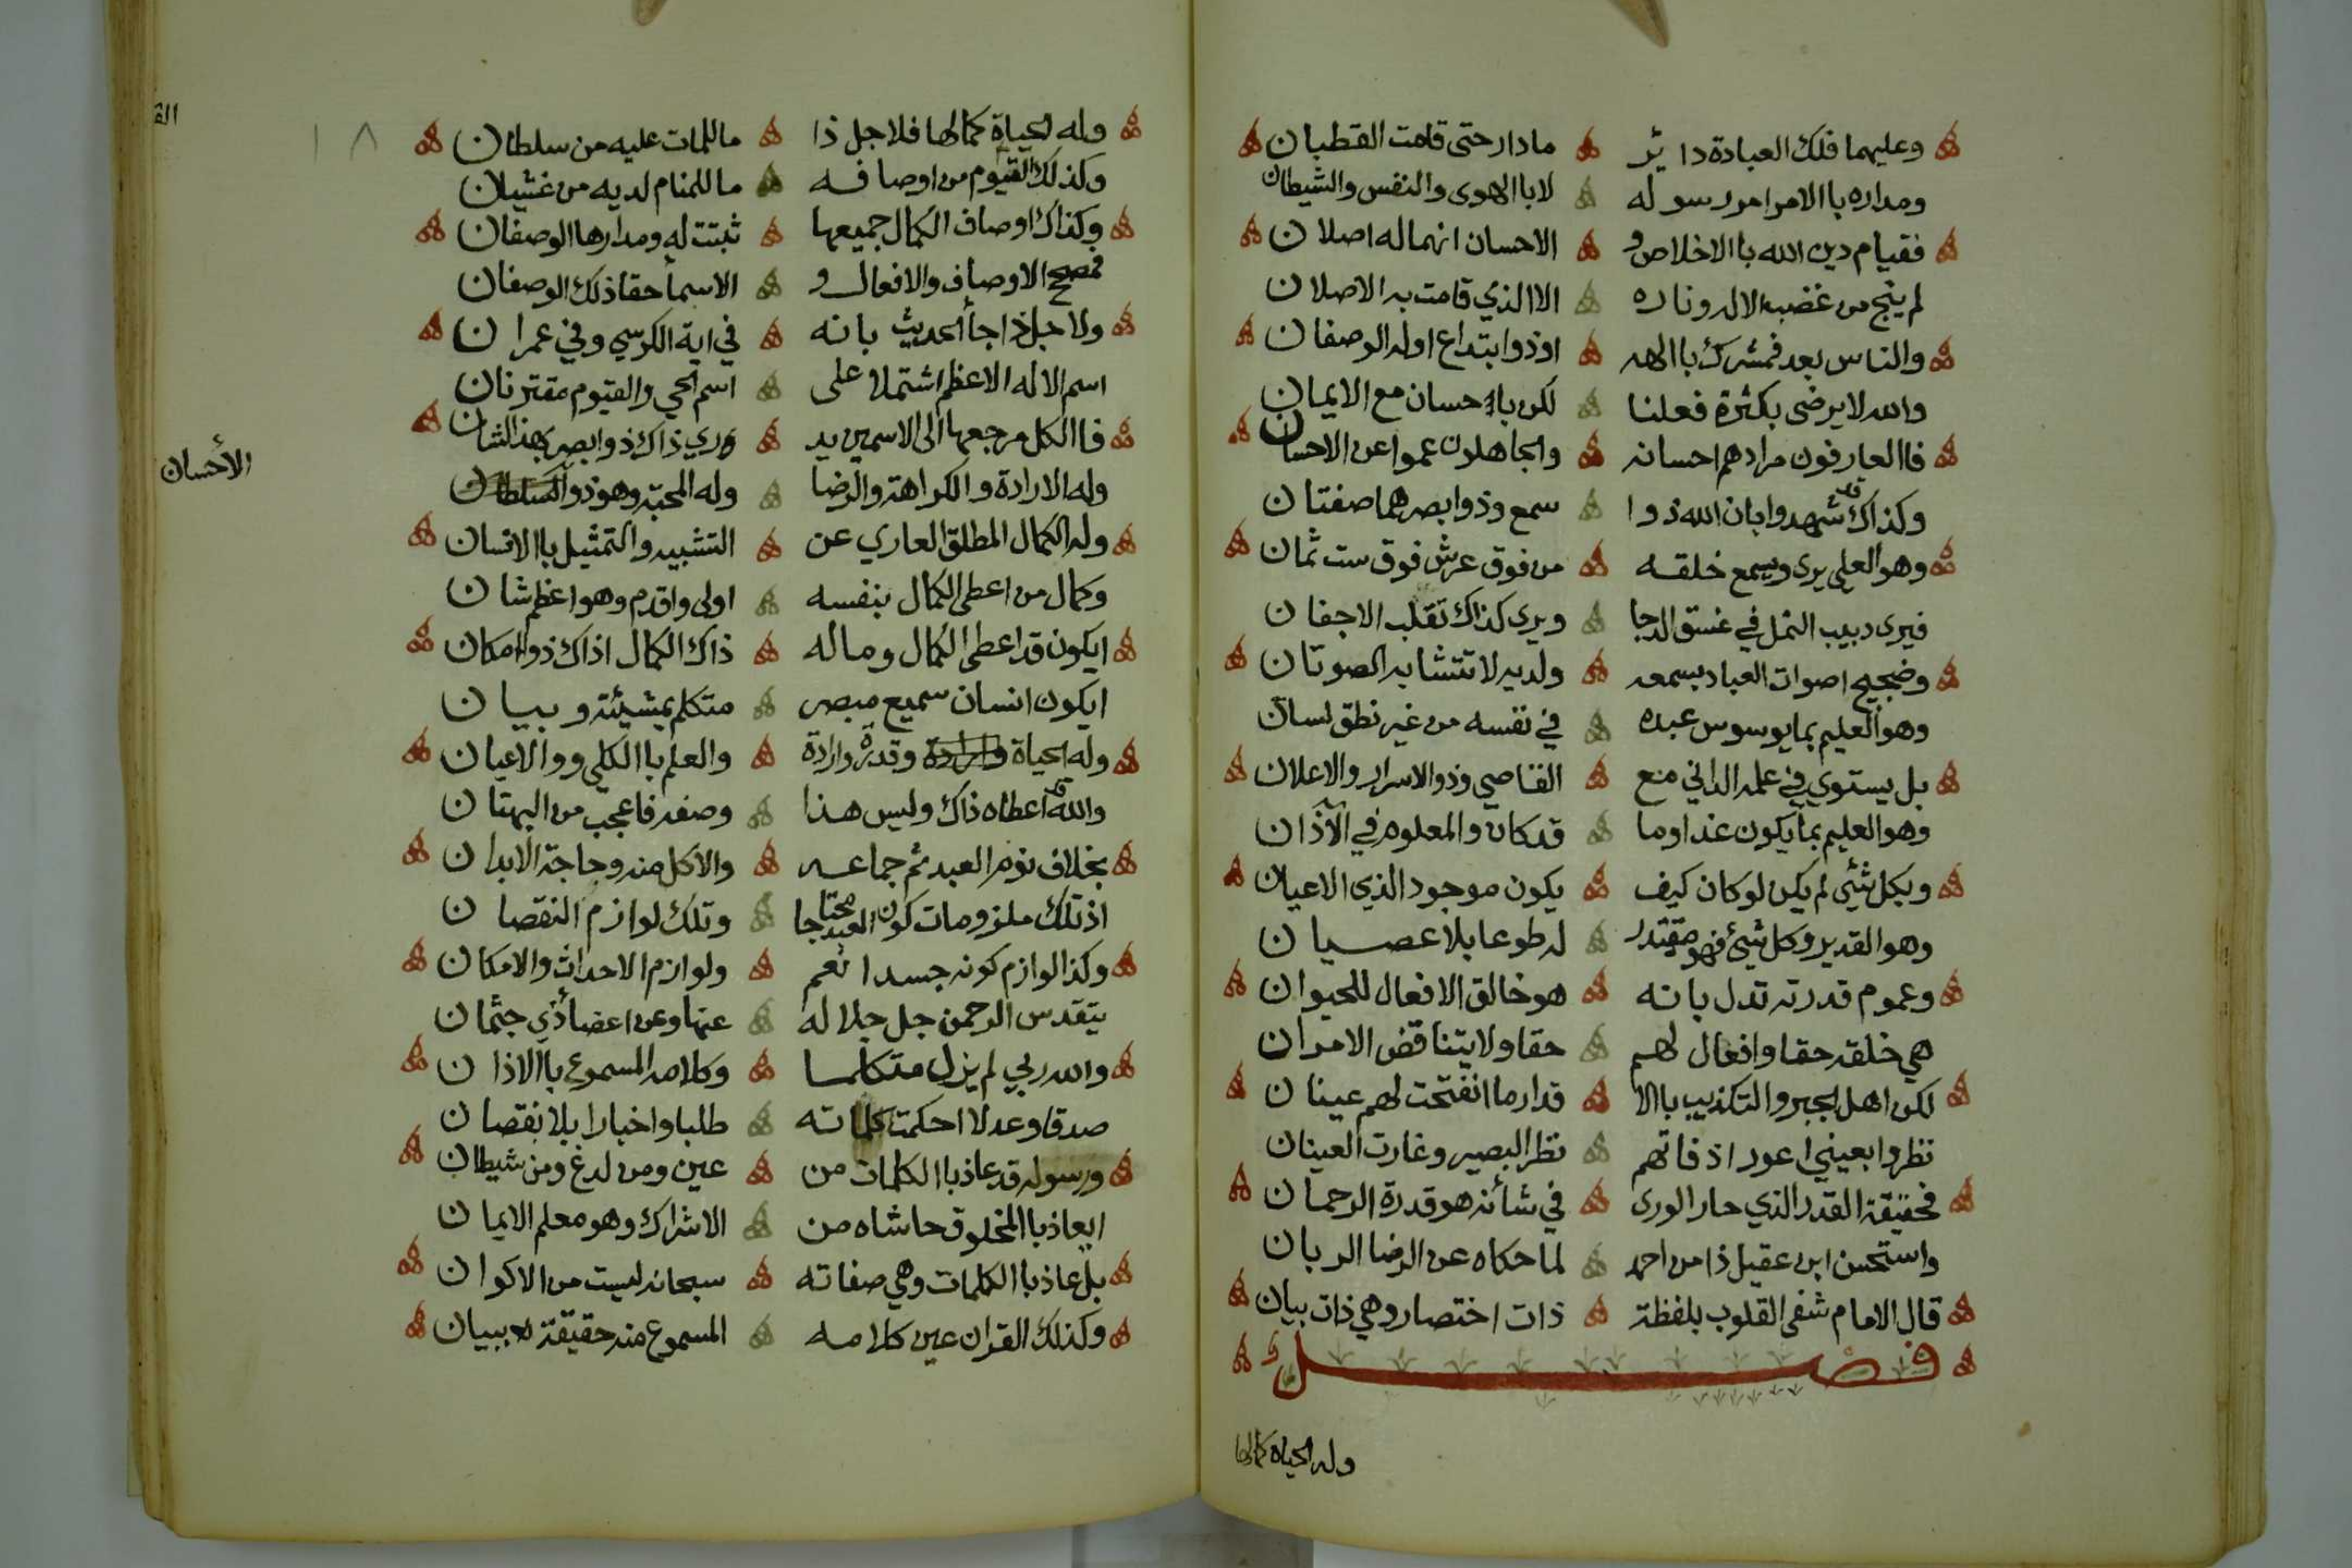 وعليهما فلك العبادة دائر مادار حتى قامت القطبان
ومداره باالامر امر رسوله لا باالهوى والنفس والشيطان
فقيام دين الله باالاخلاص و الاحسان انهما له اصلان
لم ينج من غضب الاله وناره الا الذي قامت به الاصلان
والناس بعد فمشرك باالهه اوذو ابتداع اوله الوصفان
والله لا يرضى بكثرة فعلنا لكن باحسان مع الايمان
فاالعارفون مرادهم احسانه والجاهلون عموا عن الاحسان
وكذاك قد شهدوا بان الله ذوا سمع وذوا بصر هما صفتان
وهو العلي يرى ويسمع خلقه من فوق عرش فوق ست ثمان
فيرى دبيب النمل في غسق الدجا ويرى كذاك تقلب الاجفان
وضجيج اصوات العباد بسمعه ولديه لا تتشابه الصوتان
وهو العليم بما يوسوس عبده في نفسه من غير نطق لسان
بل يستوي في علمه الداني مع القاصي وذو الاسرار والاعلان
وهو العليم بما يكون غدا وما قد كان والمعلوم في الآذان
وبكل شئي لم يكن لو كان كيف يكون موجود الذي الاعيان
وهو القدير وكل شيئ فهو مقتدر له طوعا بلا عصيان
وعموم قدرته تدل بانه هو خالق الافعال للحيوان
هي خلقه حقا وافعال لهم حقا ولا يتناقض الامران
لكن اهل الجبر والتكذيب باالا قدار ما انفتحت لهم عينان
نظروا بعيني اعور اذ فاتهم نظر البصير وغارت العينان
فحقيقة القدر الذي حار الورى في شأنه هو قدرة الرحمان
واستحسن ابن عقيل ذا من احمد لما حكاه عن الرضا الربان
قال الامام شفى القلوب بلفظة ذات اختصار وهي ذات بيان
فصل
وله الحياة كمالها
١٨
وله الحياة كمالها فلاجل ذا ما للمات عليه من سلطان
وكذلك القيوم من اوصافه ما للمنام لديه من غشيان
وكذاك اوصاف الكمال جميعها ثبتت له ومدارها الوصفان
فمصحح الاوصاف والافعال و الاسمأ حقا ذلك الوصفان
ولاجل ذا جأ الحديث بانه في اية الكرسي وفي عمران
اسم الاله الاعظم اشتملا على اسم الحي والقيوم مقترنان
فاالكل مرجعها الى الاسمين يد وري ذاك ذو ابصر بهذ الشان
وله الارادة والكراهة والرضا وله المحبة وهو ذو السلطان
وله الكمال المطلق العاري عن التشبيه والتمثيل باالانسان
وكمال من اعطى الكمال بنفسه اولى واقدم وهو اعظم شان
ايكون قد اعطى الكمال وماله ذاك الكمال اذاك ذو امكان
ايكون انسان سميع مبصر متكلم بمشيئة وبيان
وله الحياة وقدرة وارادة والعلم باالكلي ووالاعيان
والله قد اعطاه ذاك وليس هذا وصفه فاعجب من البهتان
بخلاف نوم العبد ثم جماعه والاكل منه وحاجة الابدان
اذ تلك ملزومات كون العبد محتاجا وتلك لوازم النقصان
وكذا لوازم كونه جسدا نعم ولوازم الاحداث والامكان
يتقدس الرحمن جل جلاله عنها وعن اعضأ ذي جثمان
والله ربي لم يزل متكلما وكلامه المسموع باالاذان
صدقا وعدلا احكمت كلماته طلبا واخبارا بلا نقصان
ورسوله قد عاذ باالكلمات من عين ومن لدغ ومن شيطان
ايعاذ باالمخلوق حاشاه من الاشراك وهو معلم الايمان
بل عاذ باالكلمات وهي صفاته سبحانه ليست من الاكوان
وكذلك القران عين كلامه المسموع منه حقيقة ببيان
الأحسان